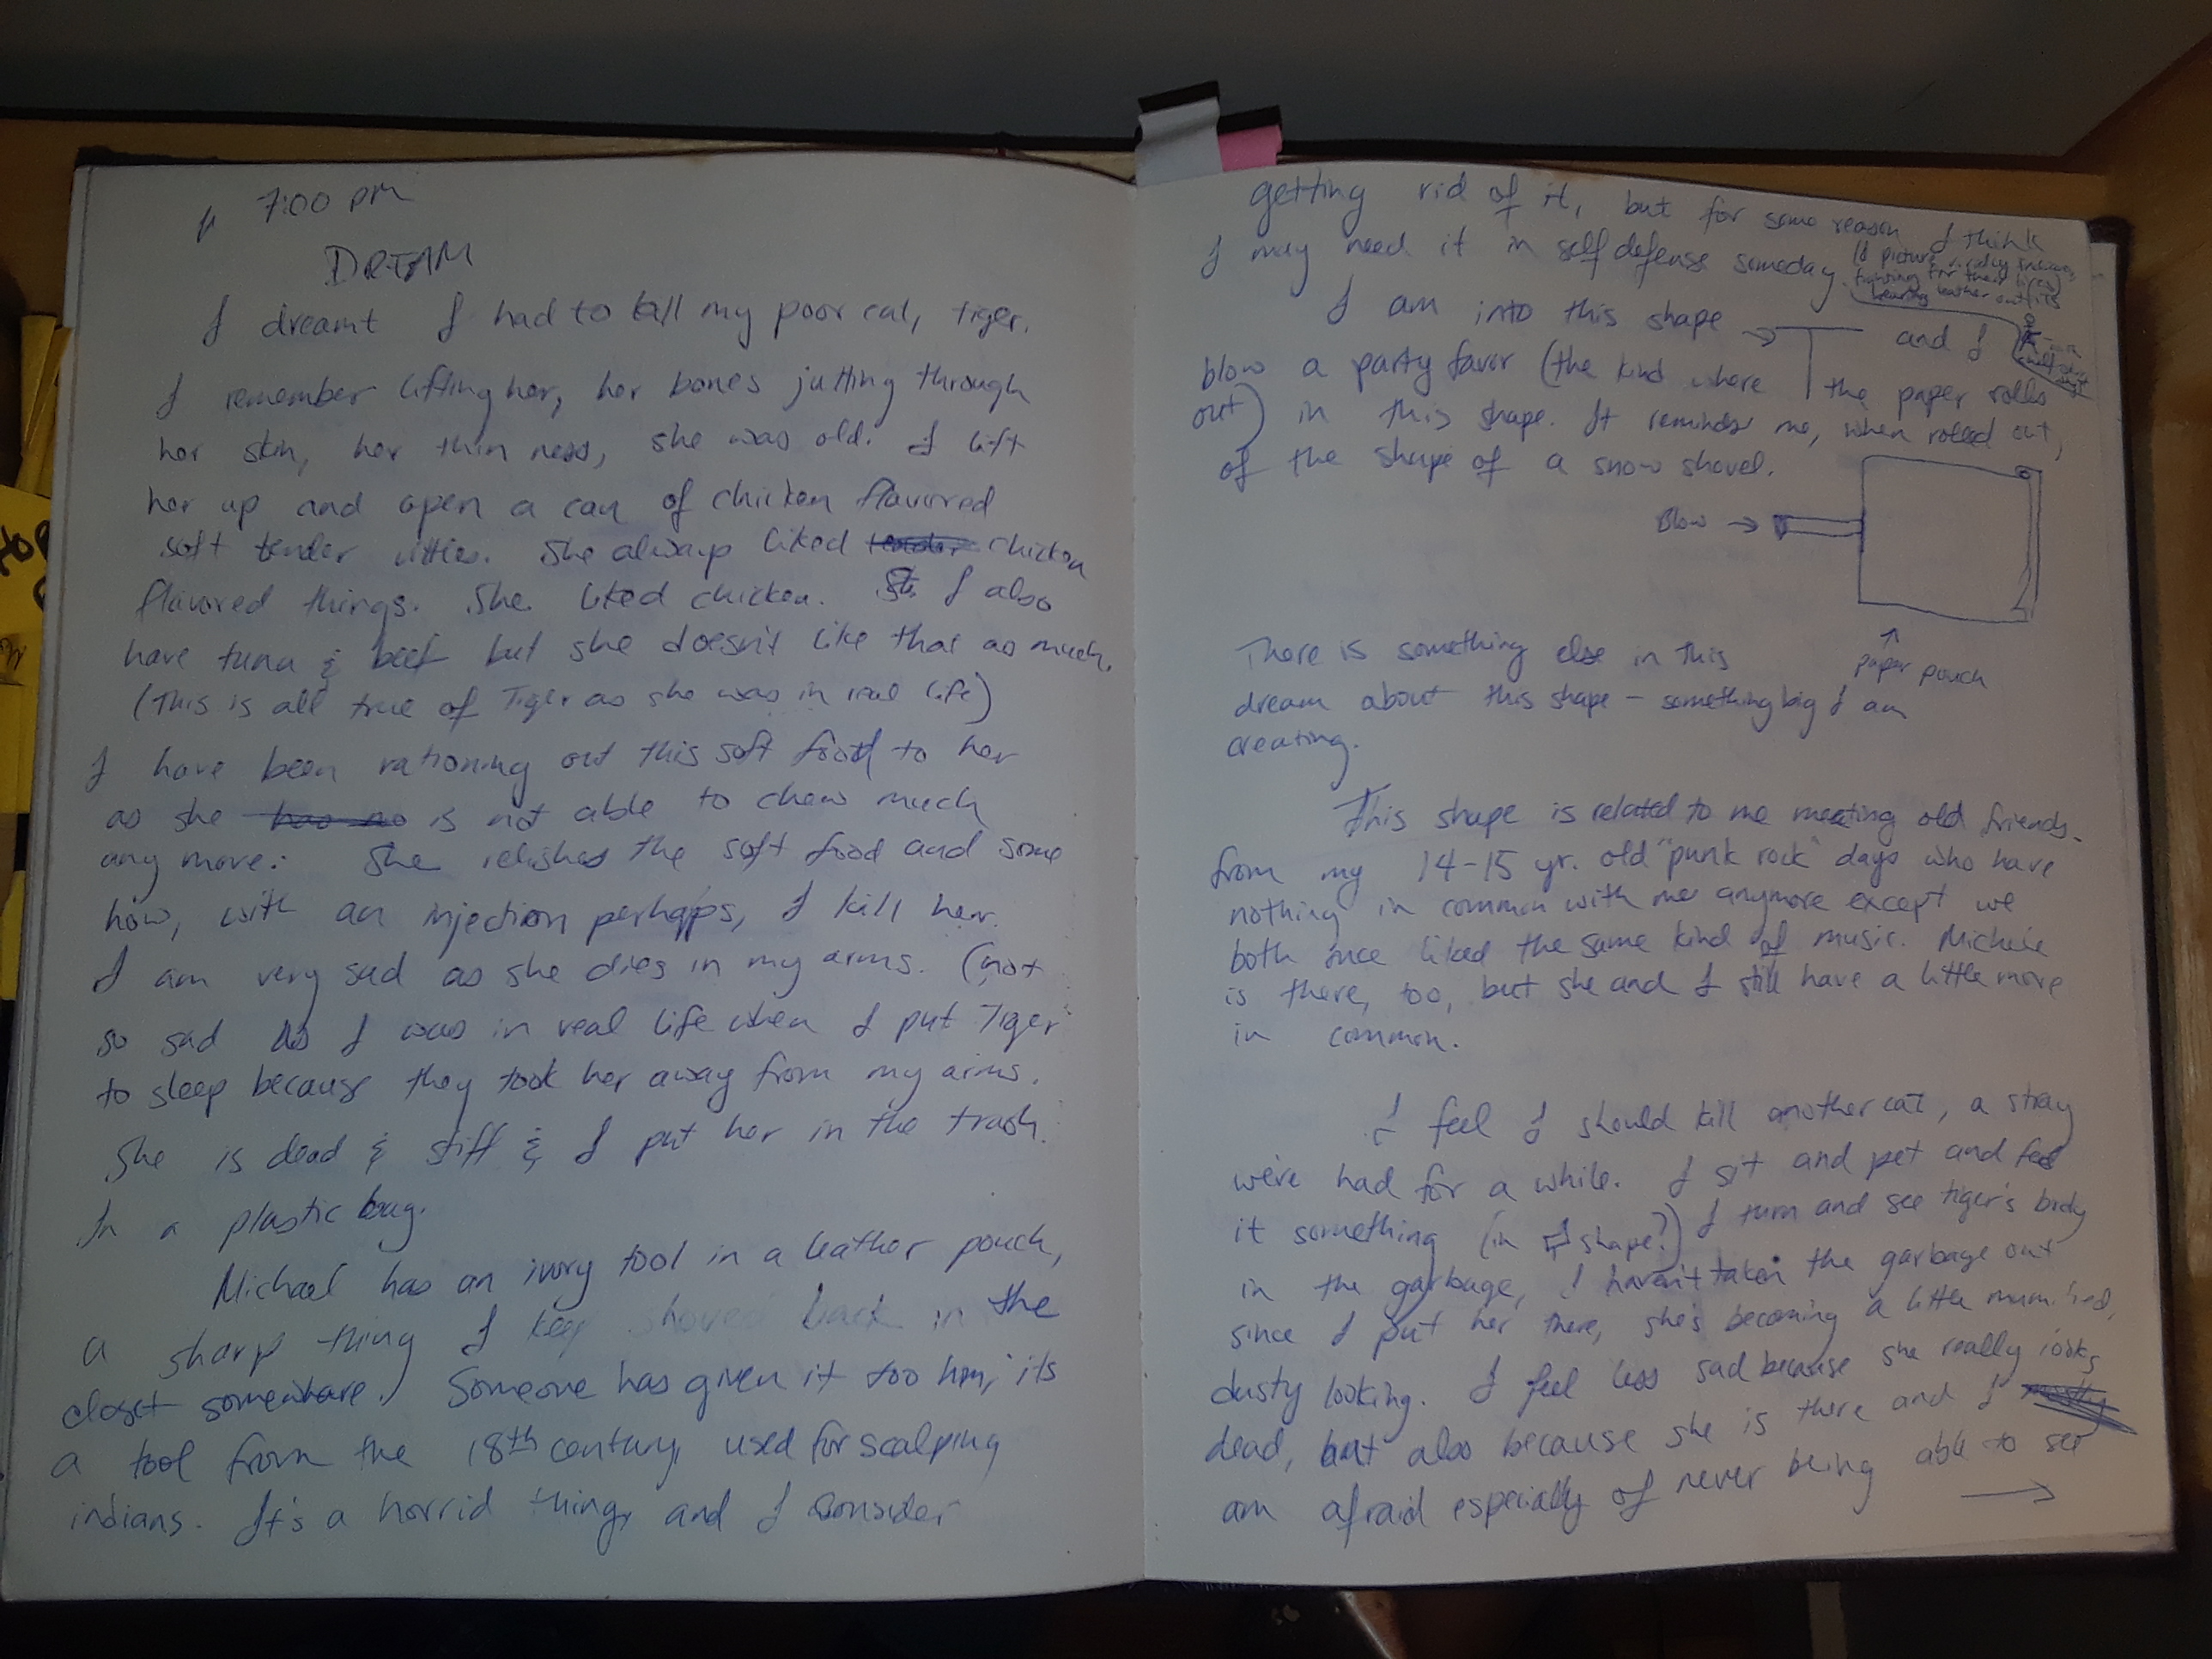 7:00 pm
DREAM
I dreamt I had to kill my poor cat, tiger.
I remember lifting her, her bones jutting through
her skin, her thin ness, she was old. I lift
her up and open a can of chicken flavored
soft tender vitties. She always liked tender chicken
flavored things. She liked chicken. She I also
have tuna & beef but she doesn't like that as much.
(This is all true of Tiger as she was in real life)
I have been rationing out this soft food to her
as she has no is not able to chew much
any more. She relishes the soft food and some
how, with an injection perhaps, I kill her.
I am very sad as she dies in my arms. (not
so sad as I was in real life when I put Tiger
to sleep because they took her away from my arms.
She is dead & stiff & I put her in the trash.
In a plastic bag.
Michael has an ivory tool in a leather pouch,
a sharp thing I keep shoved back in the
closet somewhere. Someone has given it too him, its
a tool from the 18th century, used for scalping
indians. It's a horrid thing, and I consider
getting rid of it, but for some reason I think
I may need it in self defense someday.
I picture
fighting for their lives)
wearing leather outfits
I am into this shape → and I
blow a party favor (the kind where the paper rolls
out) in this shape. It reminds me, when rolled out,
of the shape of a snow shovel.
Blow →
↑
paper pouch
There is something else in this
dream about this shape – something big I am
creating.
This shape is related to me meeting old friends
from my 14-15 yr. old "punk rock" days who have
nothing in common with me anymore except we
both once liked the same kind of music. Michele
is there, too, but she and I still have a little more
in common.
I feel I should kill another cat, a stray
we're had for a while. I sit and pet and feed
it something (in shape?) I turn and see tiger's body
in the garbage, I haven't taken the garbage out
since I put her there, she's becoming a little mummified,
dusty looking. I feel less sad because she really looks
dead, but also because she is there and I
am afraid especially of never being able to see
→